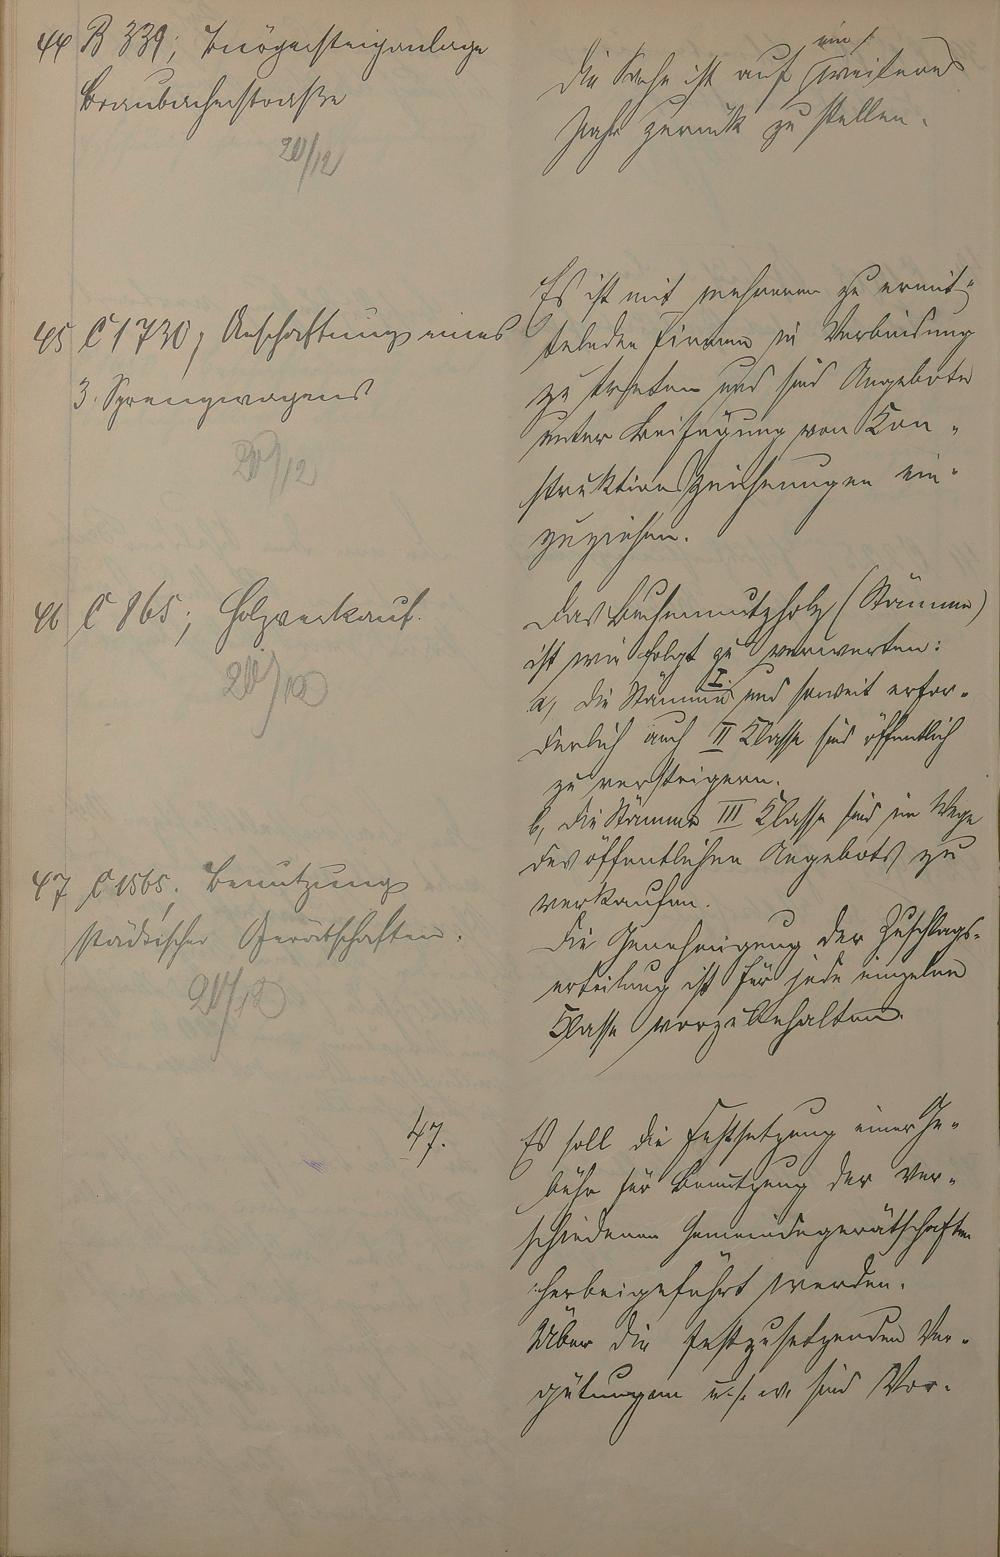 44 B 339; Bürgersteiganlage
Braubacherstraße
20/12
Die Sache ist auf ein weiteres
Jahr zurück zu stellen.
45 C 1730; Anschaffung eines
3. Sprengwagens
20/12
Es ist mit mehreren zu ermit-
telnden Firmen in Verbindung
zu treten und sind Angebote
unter Beifügung von Kon-
struktionszeichnungen ein-
zuziehen.
46 C 865; Holzverkauf.
20/12
Das Buchennutzholz (Stämme)
ist wie folgt zu verwerten:
a, die Stämme I. und soweit erfor-
derlich auch II Klasse sind öffentlich
zu versteigern.
b, die Stämme III Klasse sind im Wege
des öffentlichen Angebots zu
verkaufen.
Die Genehmigung der Zuschlags-
erteilung ist für jede einzelne
Klasse vorzubehalten.
47 C 1565. Benutzung
städtischer Gerätschaften.
20/12
47.
Es soll die Festsetzung einer Ge-
bühr für Benutzung der ver-
schiedenen Gemeindegerätschaften
herbeigeführt werden.
Über die festzusetzenden Ver-
gütungen u.s.w. sind Vor-